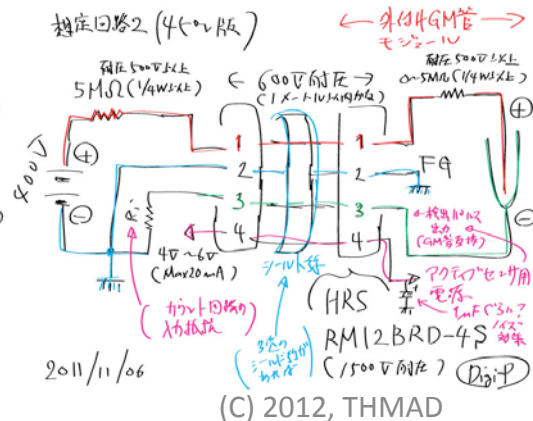 想定回路2(450V版)
外付けGM管
モジュール
耐圧500V以上
5MΩ(1/4W以上)
600V耐圧
(1メートル以内かな)
耐圧500V以上
~5MΩ(1/4W以上)
400V
1
2
3
4
1
2
3
4
FG
Ri
4V~6V
(Max20mA)
シールド線
検出パルス
出力
(GM管直接)
アクティブセンサ用
電源
1mFぐらい?
ノイズ対策
(カウント回路の
入力抵抗)
(HRS
RM12BRD-4S
(1500V耐圧)
DigiP
2011/11/06
(C) 2012, THMAD